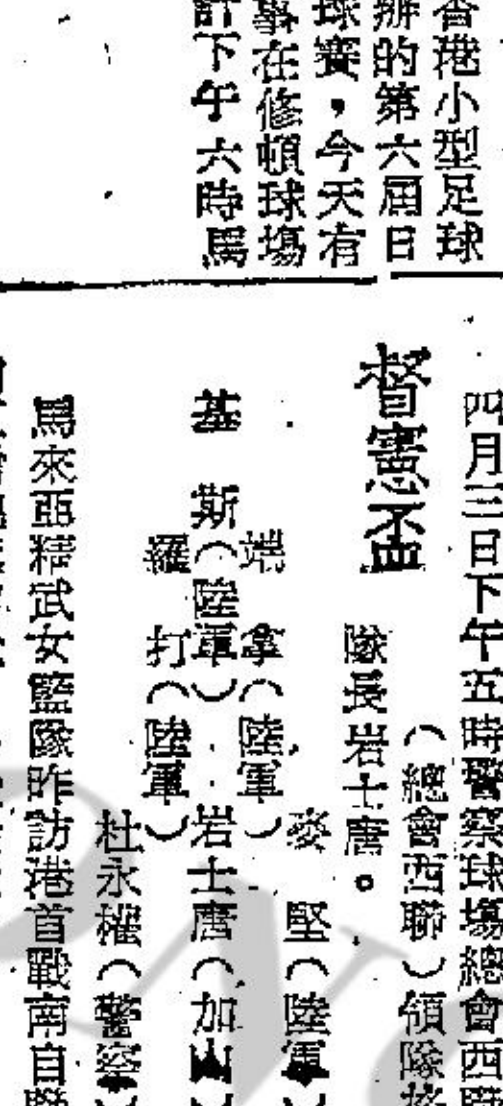 香港小型足球
辦的第六屆日
球賽，今天有
事在修頓球場
計下午六時馬
四月三日下午五時警察球場總會西聯
督憲盃
（總會西聯）領隊
隊長岩士唐。
麥堅（陸軍）
端拿（陸軍）
基斯（陸軍）
岩士唐（加山）
羅打（陸軍）
杜永權（警察）
馬來亞精武女籃隊昨訪港首戰南自聯